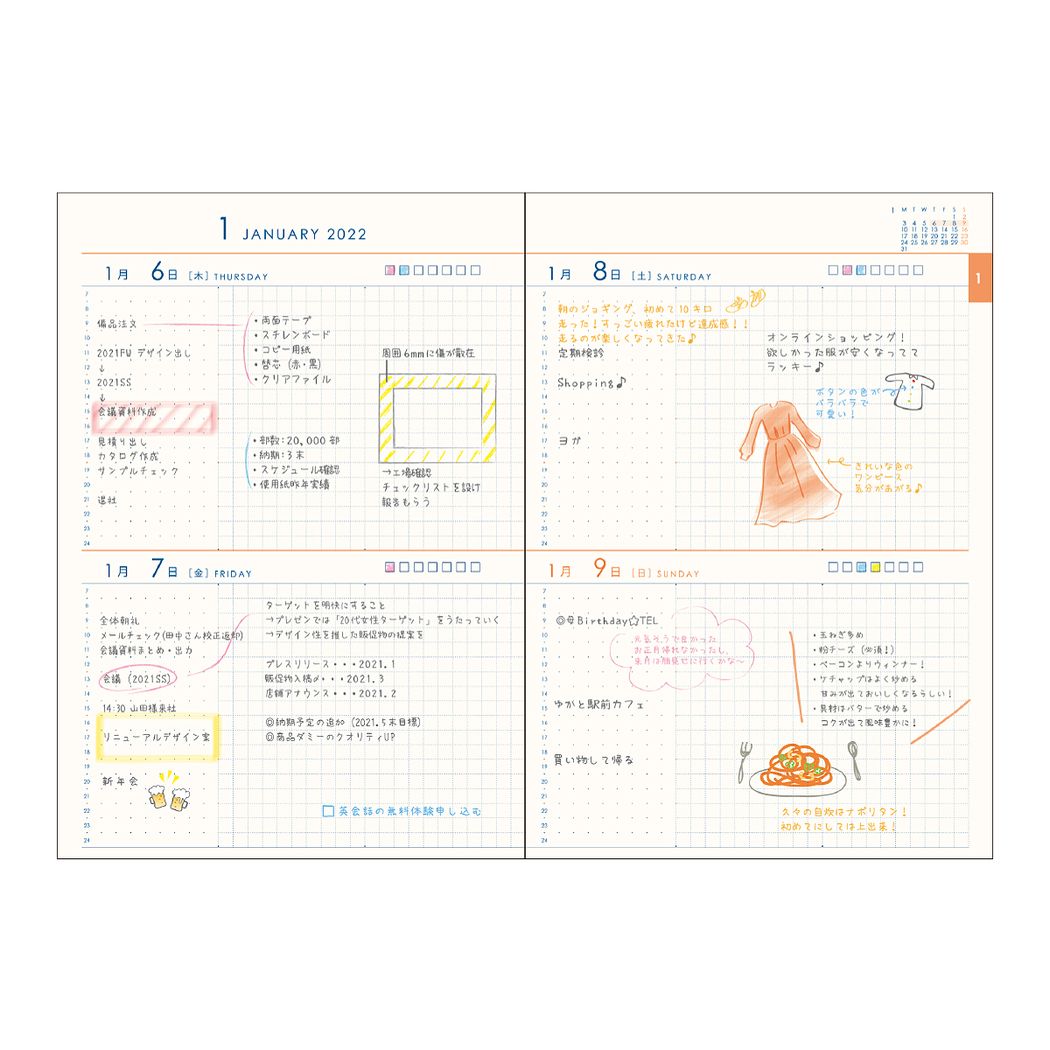 1 JANUARY 2022
1 M T W T F S S
1 2
3 4 5 6 7 8 9
10 11 12 13 14 15 16
17 18 19 20 21 22 23
24 25 26 27 28 29 30
31
1
1月 6日 [木] THURSDAY
備品注文
・両面テープ
・スチレンボード
・コピー用紙
・替芯(赤・黒)
・クリアファイル
2021FW デザイン出し
↓
2021SS
↓
会議資料作成
見積り出し
カタログ作成
サンプルチェック
退社
・部数:20,000部
・納期:3末
・スケジュール確認
・使用紙昨年実績
周囲6mmに傷が散在
→工場確認
チェックリストを設け
報告もらう
7
8
9
10
11
12
13
14
15
16
17
18
19
20
21
22
23
24
1月 7日 [金] FRIDAY
全体朝礼
メールチェック(田中さん校正返却)
会議資料まとめ・出力
会議(2021SS)
14:30 山田様来社
リニューアルデザイン案
新年会
ターゲットを明快にすること
→プレゼンでは「20代女性ターゲット」をうたっていく
→デザイン性を推した販促物の提案を
プレスリリース・・・2021.1
販促物入稿〆・・・2021.3
店舗アナウンス・・・2021.2
◎納期予定の追加(2021.5末目標)
◎商品ダミーのクオリティUP
□英会話の無料体験申し込む
7
8
9
10
11
12
13
14
15
16
17
18
19
20
21
22
23
24
1月 8日 [土] SATURDAY
朝のジョギング、初めて10キロ
走った!すっごい疲れたけど達成感!!
走るのが楽しくなってきた♪
定期検診
Shopping♪
ヨガ
オンラインショッピング!
欲しかった服が安くなってて
ラッキー♪
ボタンの色が
バラバラで
可愛い!
きれいな色の
ワンピース
気分があがる♪
7
8
9
10
11
12
13
14
15
16
17
18
19
20
21
22
23
24
1月 9日 [日] SUNDAY
◎母Birthday☆TEL
元気そうで良かった
お正月帰れなかったし、
来月は顔見せに行くかな〜
ゆかと駅前カフェ
買い物して帰る
・玉ねぎ多め
・粉チーズ(必須!)
・ベーコンよりウィンナー!
・ケチャップはよく炒める
甘みが出ておいしくなるらしい!
・具材はバターで炒める
コクが出て風味豊かに!
久々の自炊はナポリタン!
初めてにしては上出来!
7
8
9
10
11
12
13
14
15
16
17
18
19
20
21
22
23
24